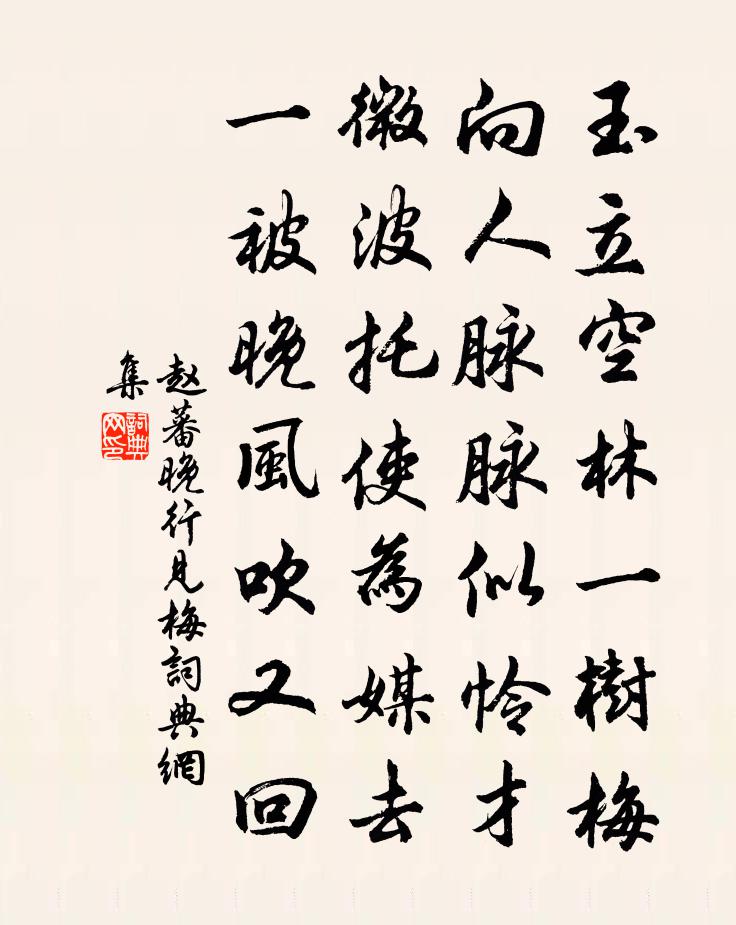 玉立空林一樹梅
向人脉脉似怜才
微波托使為媒去
一被晚風吹又回
赵蕃晚行見梅詞典網
集
詞典
网印